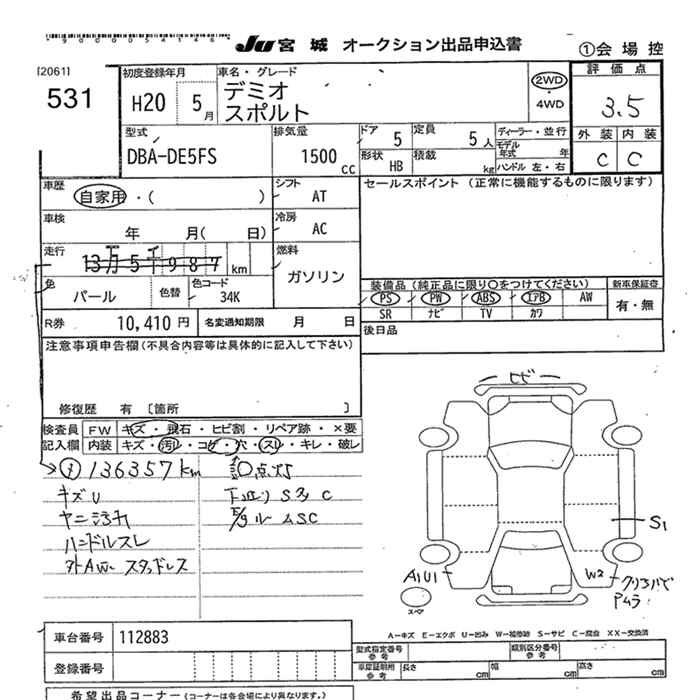 *9000054146*
JU 宮城 オークション出品申込書
①会場控
[2061]
531
初度登録年月
H20 5月
車名・グレード
デミオ
スポルト
2WD
・
4WD
評価点
3.5
外装 内装
C C
型式
DBA-DE5FS
排気量
1500 CC
ドア 5
定員 5人
形状 HB
積載 kg
ディーラー・並行
モデル年式 年
ハンドル 左・右
車歴
自家用・( )
シフト
AT
車検
年 月( 日)
冷房
AC
走行
13万5千987km
燃料
ガソリン
色
パール
色替
色コード
34K
R券 10,410円
名変通知期限 月 日
セールスポイント (正常に機能するものに限ります)
装備品 (純正品に限り○をつけてください)
PS PW ABS エアB AW
SR ナビ TV カワ
新車保証書
有・無
後日品
注意事項申告欄(不具合内容等は具体的に記入して下さい)
修復歴 有 [箇所 ]
検査員記入欄
FW キズ・飛石・ヒビ割・リペア跡・×要
内装 キズ・汚レ・コゲ・穴・スレ・キレ・破レ
136357km
キズU
ヤニ汚れ
ハンドルスレ
外AW スタッドレス
点灯
下廻り Sタ C
E/gルームSC
ヒビ
S1
A1U1
W2
クリアハゲ
Pムラ
スペア
A-キズ E-エクボ U-凹み W-補修跡 S-サビ C-腐食 XX-交換済
車台番号 112883
登録番号
型式指定番号
参考
類別区分番号
参考
車庫証明用
参考
長さ cm
幅 cm
高さ cm
希望出品コーナー(コーナーは各会場により異なります。)